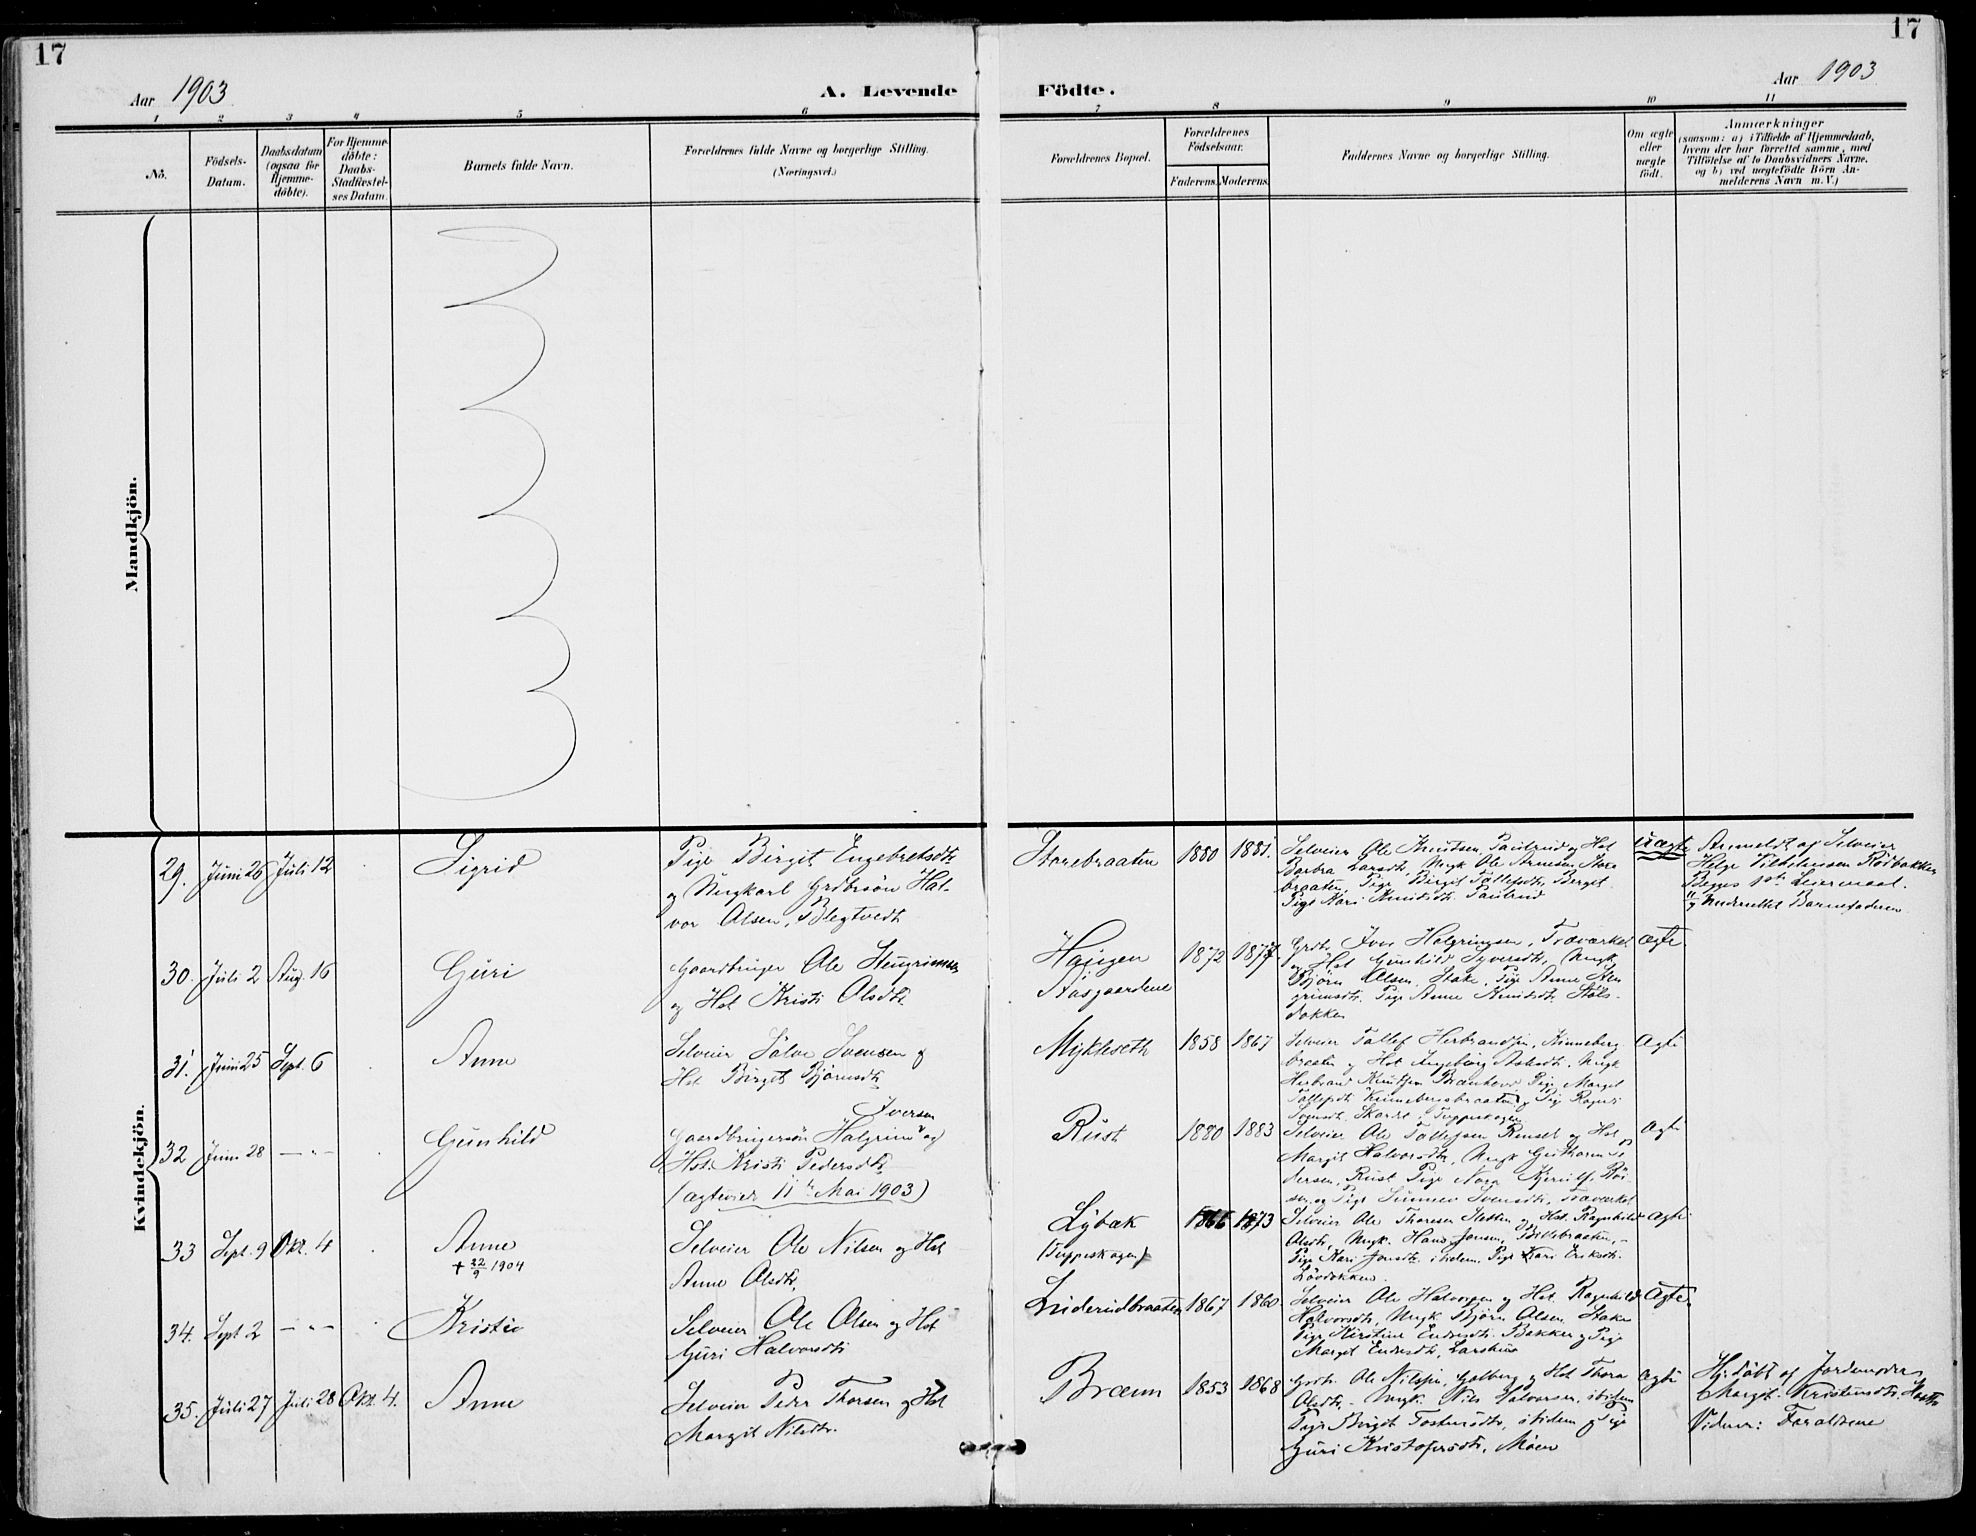 17
17
Aar 1903
A. Levende
Födte.
Aar 1903
1 2 3 4 5 6 7 8 9 10 11
No.
Födsels-
Datum.
Daabsdatum
(ogsaa for
Hjemme-
döbte).
For Hjemme-
döbte:
Daabs-
Stadfæstel-
ses Datum.
Barnets fulde Navn.
Forældrenes fulde Navne og borgerlige Stilling.
(Næringsvei.)
Forældrenes Bopæl.
Forældrenes
Födselsaar.
Faderens.
Moderens.
Faddernes Navne og borgerlige Stilling.
Om ægte
eller
uægte
födt.
Anmærkninger
(saasom: a) i Tilfælde af Hjemmedaab,
hvem der har forrettet samme, med
Tilföielse af to Daabsvidners Navne,
og b) ved uægtefödte Börn An-
melderens Navn m. V.)
Mandkjön.
Kvindekjön.
29. Juni 26 Juli 12
Sigrid
Pige Birgit Engebretsdtr
og Ungkarl Grdbrsön Hal-
vor Olsen,
Storebraaten
1880 1881.
Selveier Ole Knutsen, Paulsrud og Hst
Barbra Larsdtr, Ungk Ole Arnesen, Store
braaten, Pige Birgit Tollefsdtr, Berget
Pige Kari Knutsdtr Paulsrud
Uægte
Anmeldt af Selveier
Helge Vilhelmsen Rödbakken
Begges 1ste Leiermaal.
30. Juli 2 Aug. 16
Guri
Gaardbruger Ole Stengrimsen
og Hst Kristi Olsdtr
Haugen
Aasgaardene
1872 1877
Grdbr. Iver Halgrimsen, Traværket
og Hst Gunhild Syversdtr, Ungk
Björn Olsen, Stake, Pige Anne Sten
grimsdtr. Pige Anne Knutsdtr Stöls
dokken
ægte
31. Juni 25 Sept. 6
Anne
Selveier Sölve Svensen og
Hst. Birget Björnsdtr
Mykleseth
1858 1867
Selveier Tollef Herbrandsen, Kinneberg
braaten og Hst Ingebörg Aslesdtr. Ungk
Herbrand Knutsen Pige Marget
Tollefsdtr Kinnebergbraaten og Pige Ragnri
Svensdtr. Skardt, Tuppeskogen
Ægte
32 Juni 28 — „ —
Gunhild
Iversen
Gaardbrugersön Halgrim og
Hst. Kristi Pedersdtr
(ægteviet 11te Mai 1903)
Rust
1880 1883
Selveier Ole Tollefsen og Hst
Margit Halvorsdtr, Ungk Guttorm Pe
dersen, Rust Pige Nora
og Pige Sunnev Svensdtr, Traværket
Ægte
33 Sept. 9 Okt. 4
Anne
+ 22/9 1904
Selveier Ole Nilsen og Hst
Anne Olsdtr.
Lybæk
(Tuppeskogen)
1866 1873
Selveier Ole Thoresen Sletten og Hst. Ragnhild
Olsdtr, Ungk. Hans Jonsen, —
Pige Kari Jonsdtr ibidem. Pige Kari Eriksdtr.
Lövdokken.
Ægte
34. Sept 2 — „ —
Kristi
Selveier Ole Olsen og Hst
Guri Halvorsdtr
Luderudbraaten
1867 1860
Selveier Ole Halvorsen og Hst Ragnhild
Halvorsdtr, Ungk Björn Olsen, Stake
Pige Kirstine Endresdtr. Bakken og Pige
Marget Endresdtr, Larshus
Ægte.
35. Juli 27 Juli 28 Okt. 4.
Anne
Selveier Peder Thorsen og Hst
Margit Nilsdtr.
Bræen
1853 1868
Grdbr. Ole Nilsen, Golberg og Hst Thora
Olsdtr, — Ungk. Nils Halvorsen, ibidem
Pige Birgit Tostensdtr, ibidem Pige
Guri Kristofersdtr, Moen
Ægte
Hj. döbt af Jordemoder
Margit Kristensdtr.
Vidner: Forældrene